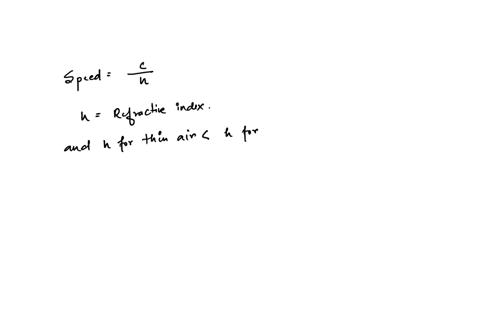 Speed = c/n
n = Refractive index.
and n for thin air < n for